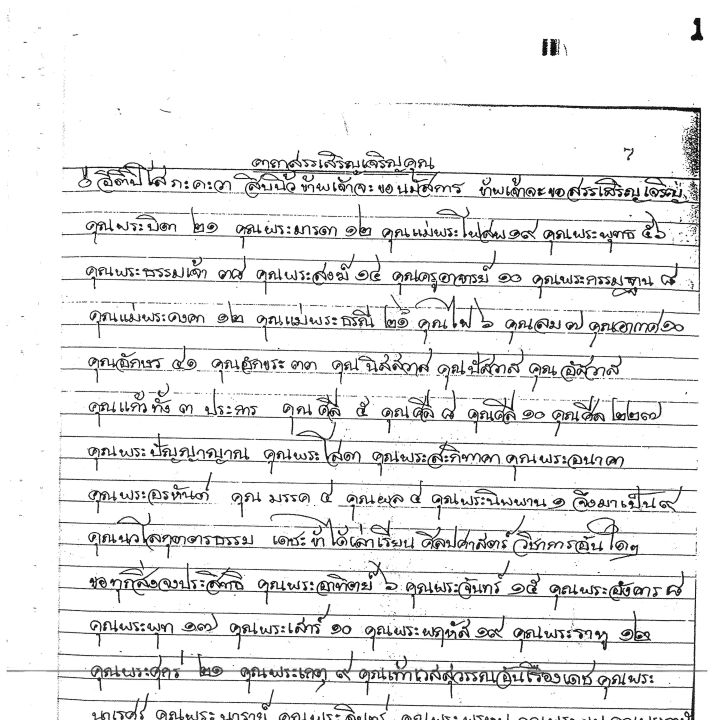 1
คาถาสรรเสริญเจริญคุณ
๗
อิติปิโส ภะคะวา สิบนิ้ว ข้าพเจ้าจะขอนมัสการ ข้าพเจ้าจะขอสรรเสริญเจริญ
คุณพระบิดา ๒๑ คุณพระมารดา ๑๒ คุณแม่พระโพสพ ๑๙ คุณพระพุทธ ๕๖
คุณพระธรรมเจ้า ๓๘ คุณพระสงฆ์ ๑๔ คุณครูอาจารย์ ๑๐ คุณพระกรรมฐาน ๘
คุณแม่พระคงคา ๑๒ คุณแม่พระธรณี ๒๑ คุณไฟ ๖ คุณลม ๗ คุณอากาศ ๑๐
คุณอักษร ๔๑ คุณอักขระ ๓๓ คุณ นิสสวาส คุณ ปัสวาส คุณ อัสวาส
คุณแก้วทั้ง ๓ ประการ คุณศีล ๕ คุณศีล ๘ คุณศีล ๑๐ คุณศีล ๒๒๗
คุณพระปัญญาญาณ คุณพระโสดา คุณพระสะกิทาคา คุณพระอนาคา
คุณพระอรหันต์ คุณ มรรค ๔ คุณผล ๔ คุณพระนิพพาน ๑ จึงมาเป็น ๙
คุณนวโลกุตตารธรรม เดชะข้าได้เล่าเรียน ศิลปศาสตร์ วิชาการอันใดๆ
ขอทุกสิ่งจงประสิทธิ คุณพระอาทิตย์ ๖ คุณพระจันทร์ ๑๕ คุณพระอังคาร ๘
คุณพระพุท ๑๗ คุณพระเสาร์ ๑๐ คุณพระพฤหัส ๑๙ คุณพระราหู ๑๒
คุณพระศุกร์ ๒๑ คุณพระเกตุ ๙ คุณท้าวเวสสุวรรณอันเรืองเดช คุณพระ
นาเรศร์ คุณพระนารายณ์ คุณพระอินทร์